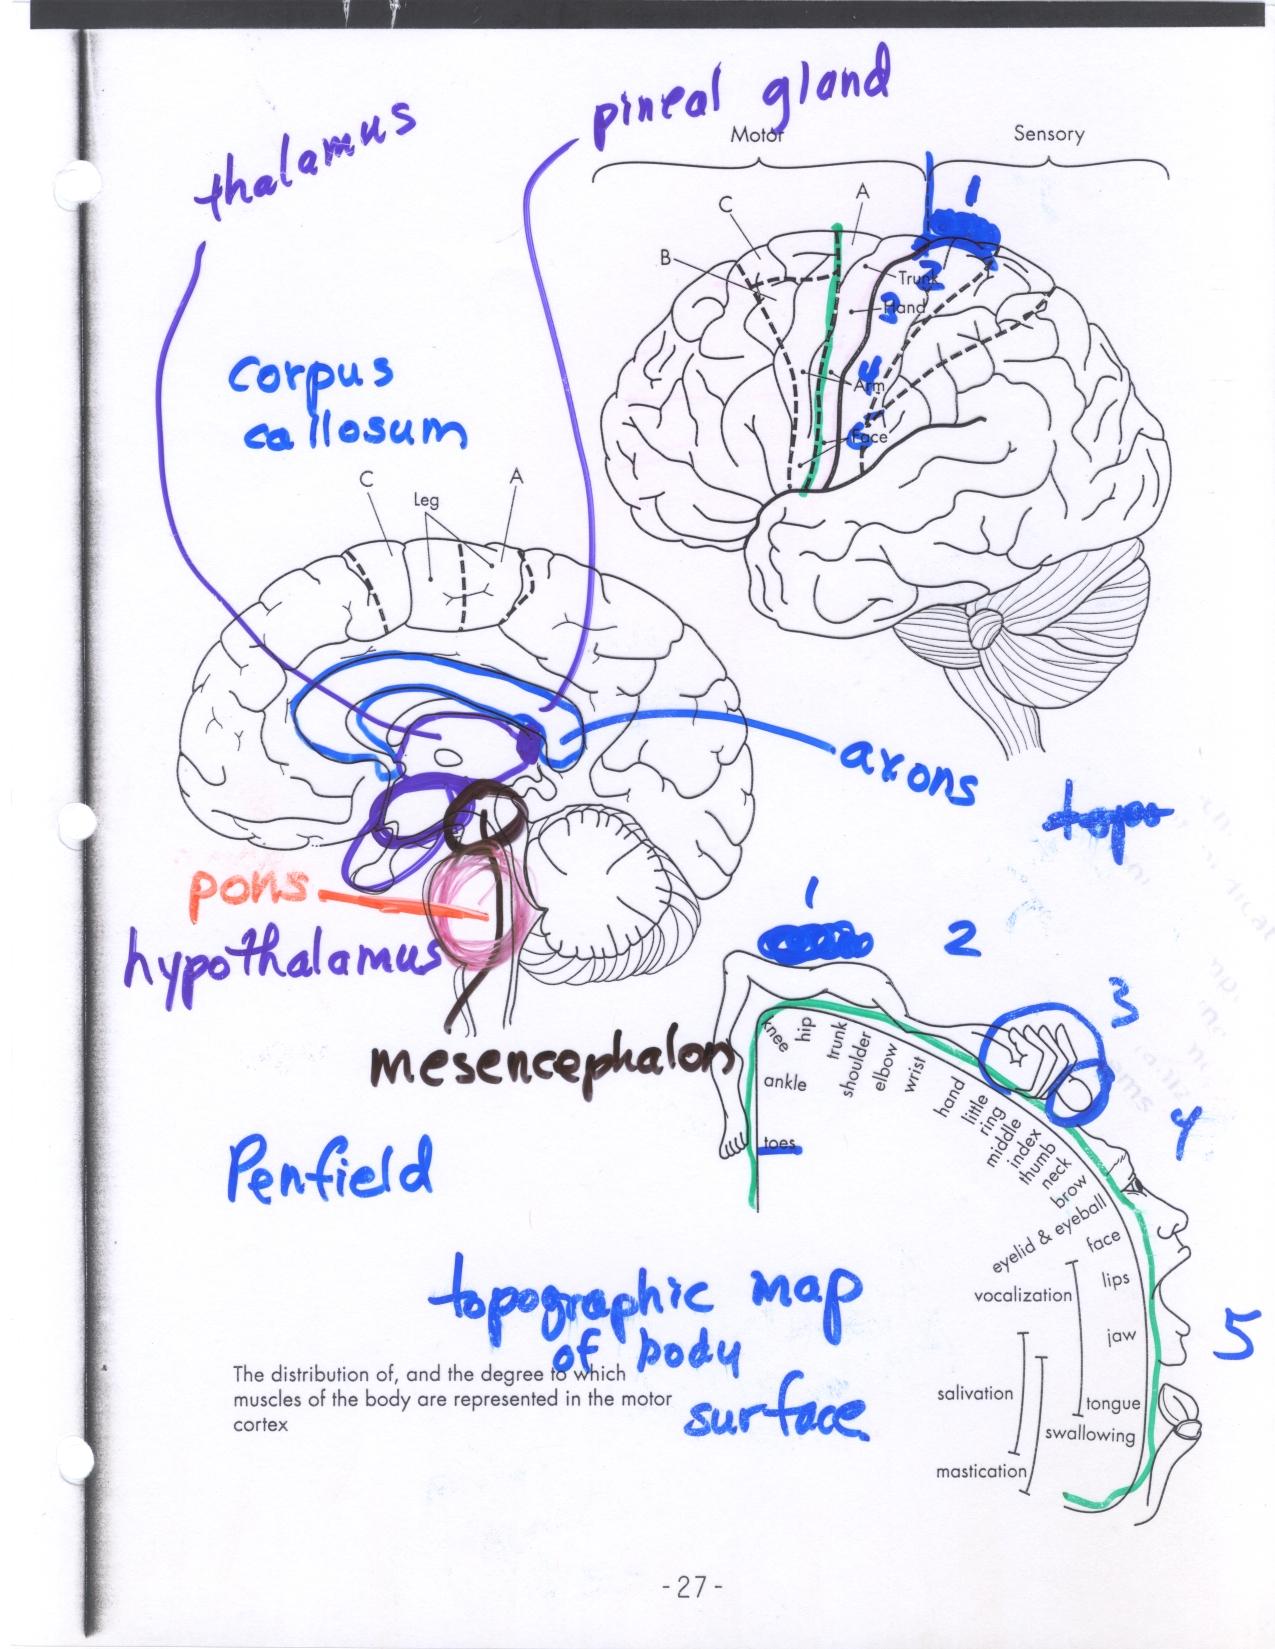 pineal gland
thalamus
Motor
Sensory
1
C
A
B
Trunk
2
Hand
3
4
Arm
Face
corpus
callosum
C
Leg
A
axons
topo
pons
hypothalamus
mesencephalon
1
2
3
4
5
knee
hip
trunk
shoulder
elbow
wrist
hand
little
ring
middle
index
thumb
neck
brow
eyelid & eyeball
face
ankle
toes
lips
vocalization
jaw
salivation
tongue
swallowing
mastication
Penfield
topographic map
of body
surface
The distribution of, and the degree to which
muscles of the body are represented in the motor
cortex
-27-